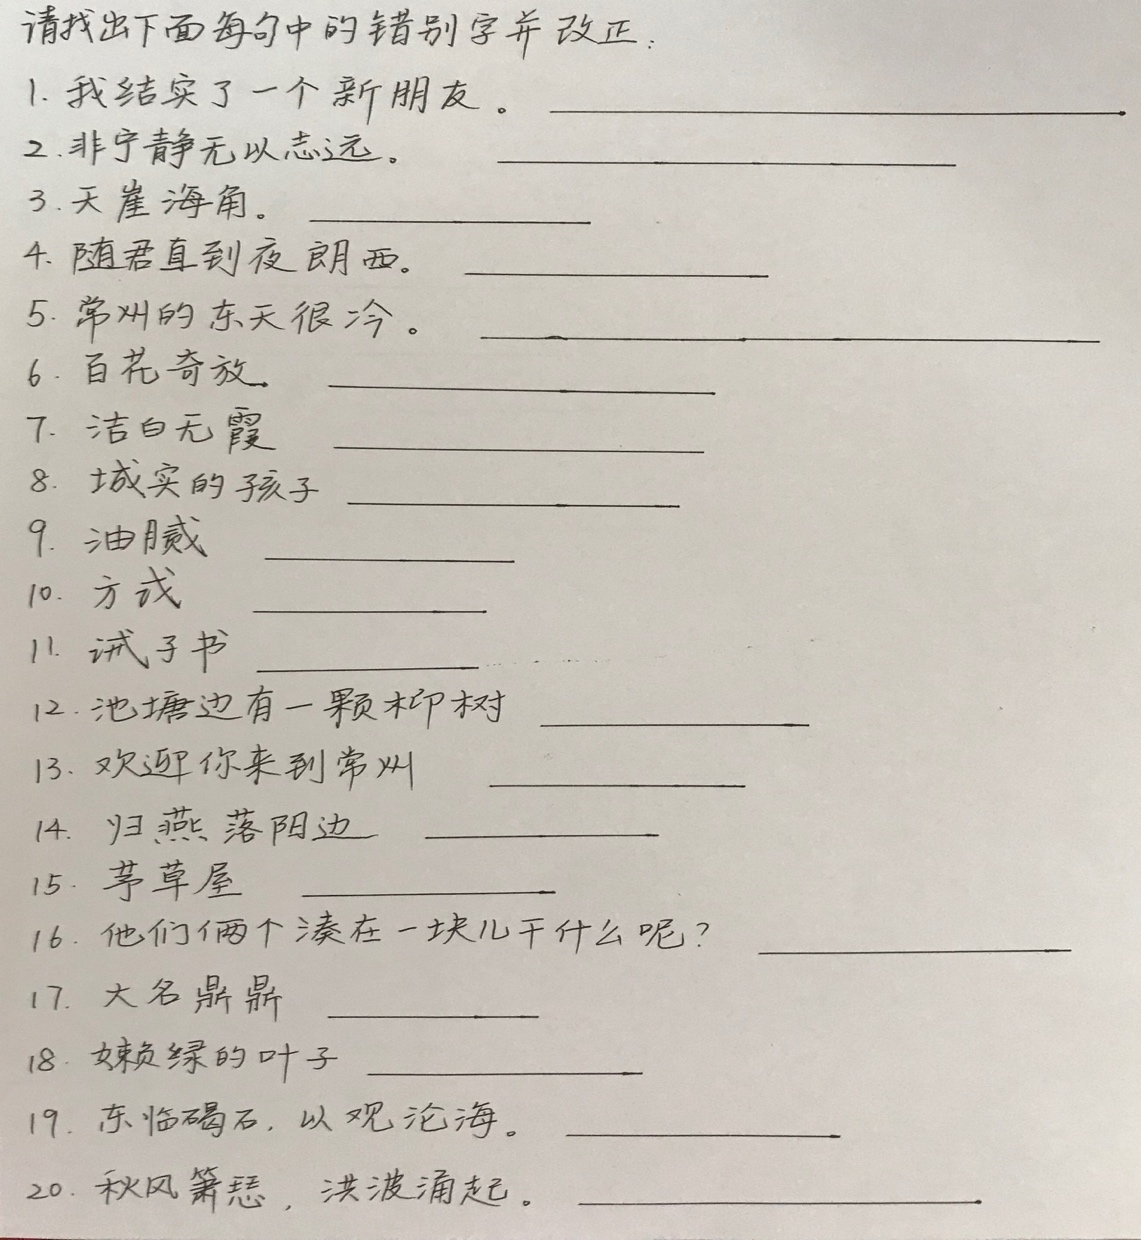 请找出下面每句中的错别字并改正:
1. 我结实了一个新朋友。
2. 非宁静无以志远。
3. 天崖海角。
4. 随君直到夜朗西。
5. 常州的东天很冷。
6. 百花奇放。
7. 洁白无霞
8. 城实的孩子
9. 油腻
10. 方式
11. 诫子书
12. 池塘边有一颗柳树
13. 欢迎你来到常州
14. 归燕落阳边
15. 茅草屋
16. 他们俩个凑在一块儿干什么呢?
17. 大名鼎鼎
18. 嫩绿的叶子
19. 东临碣石, 以观沦海。
20. 秋风箫瑟, 洪波涌起。